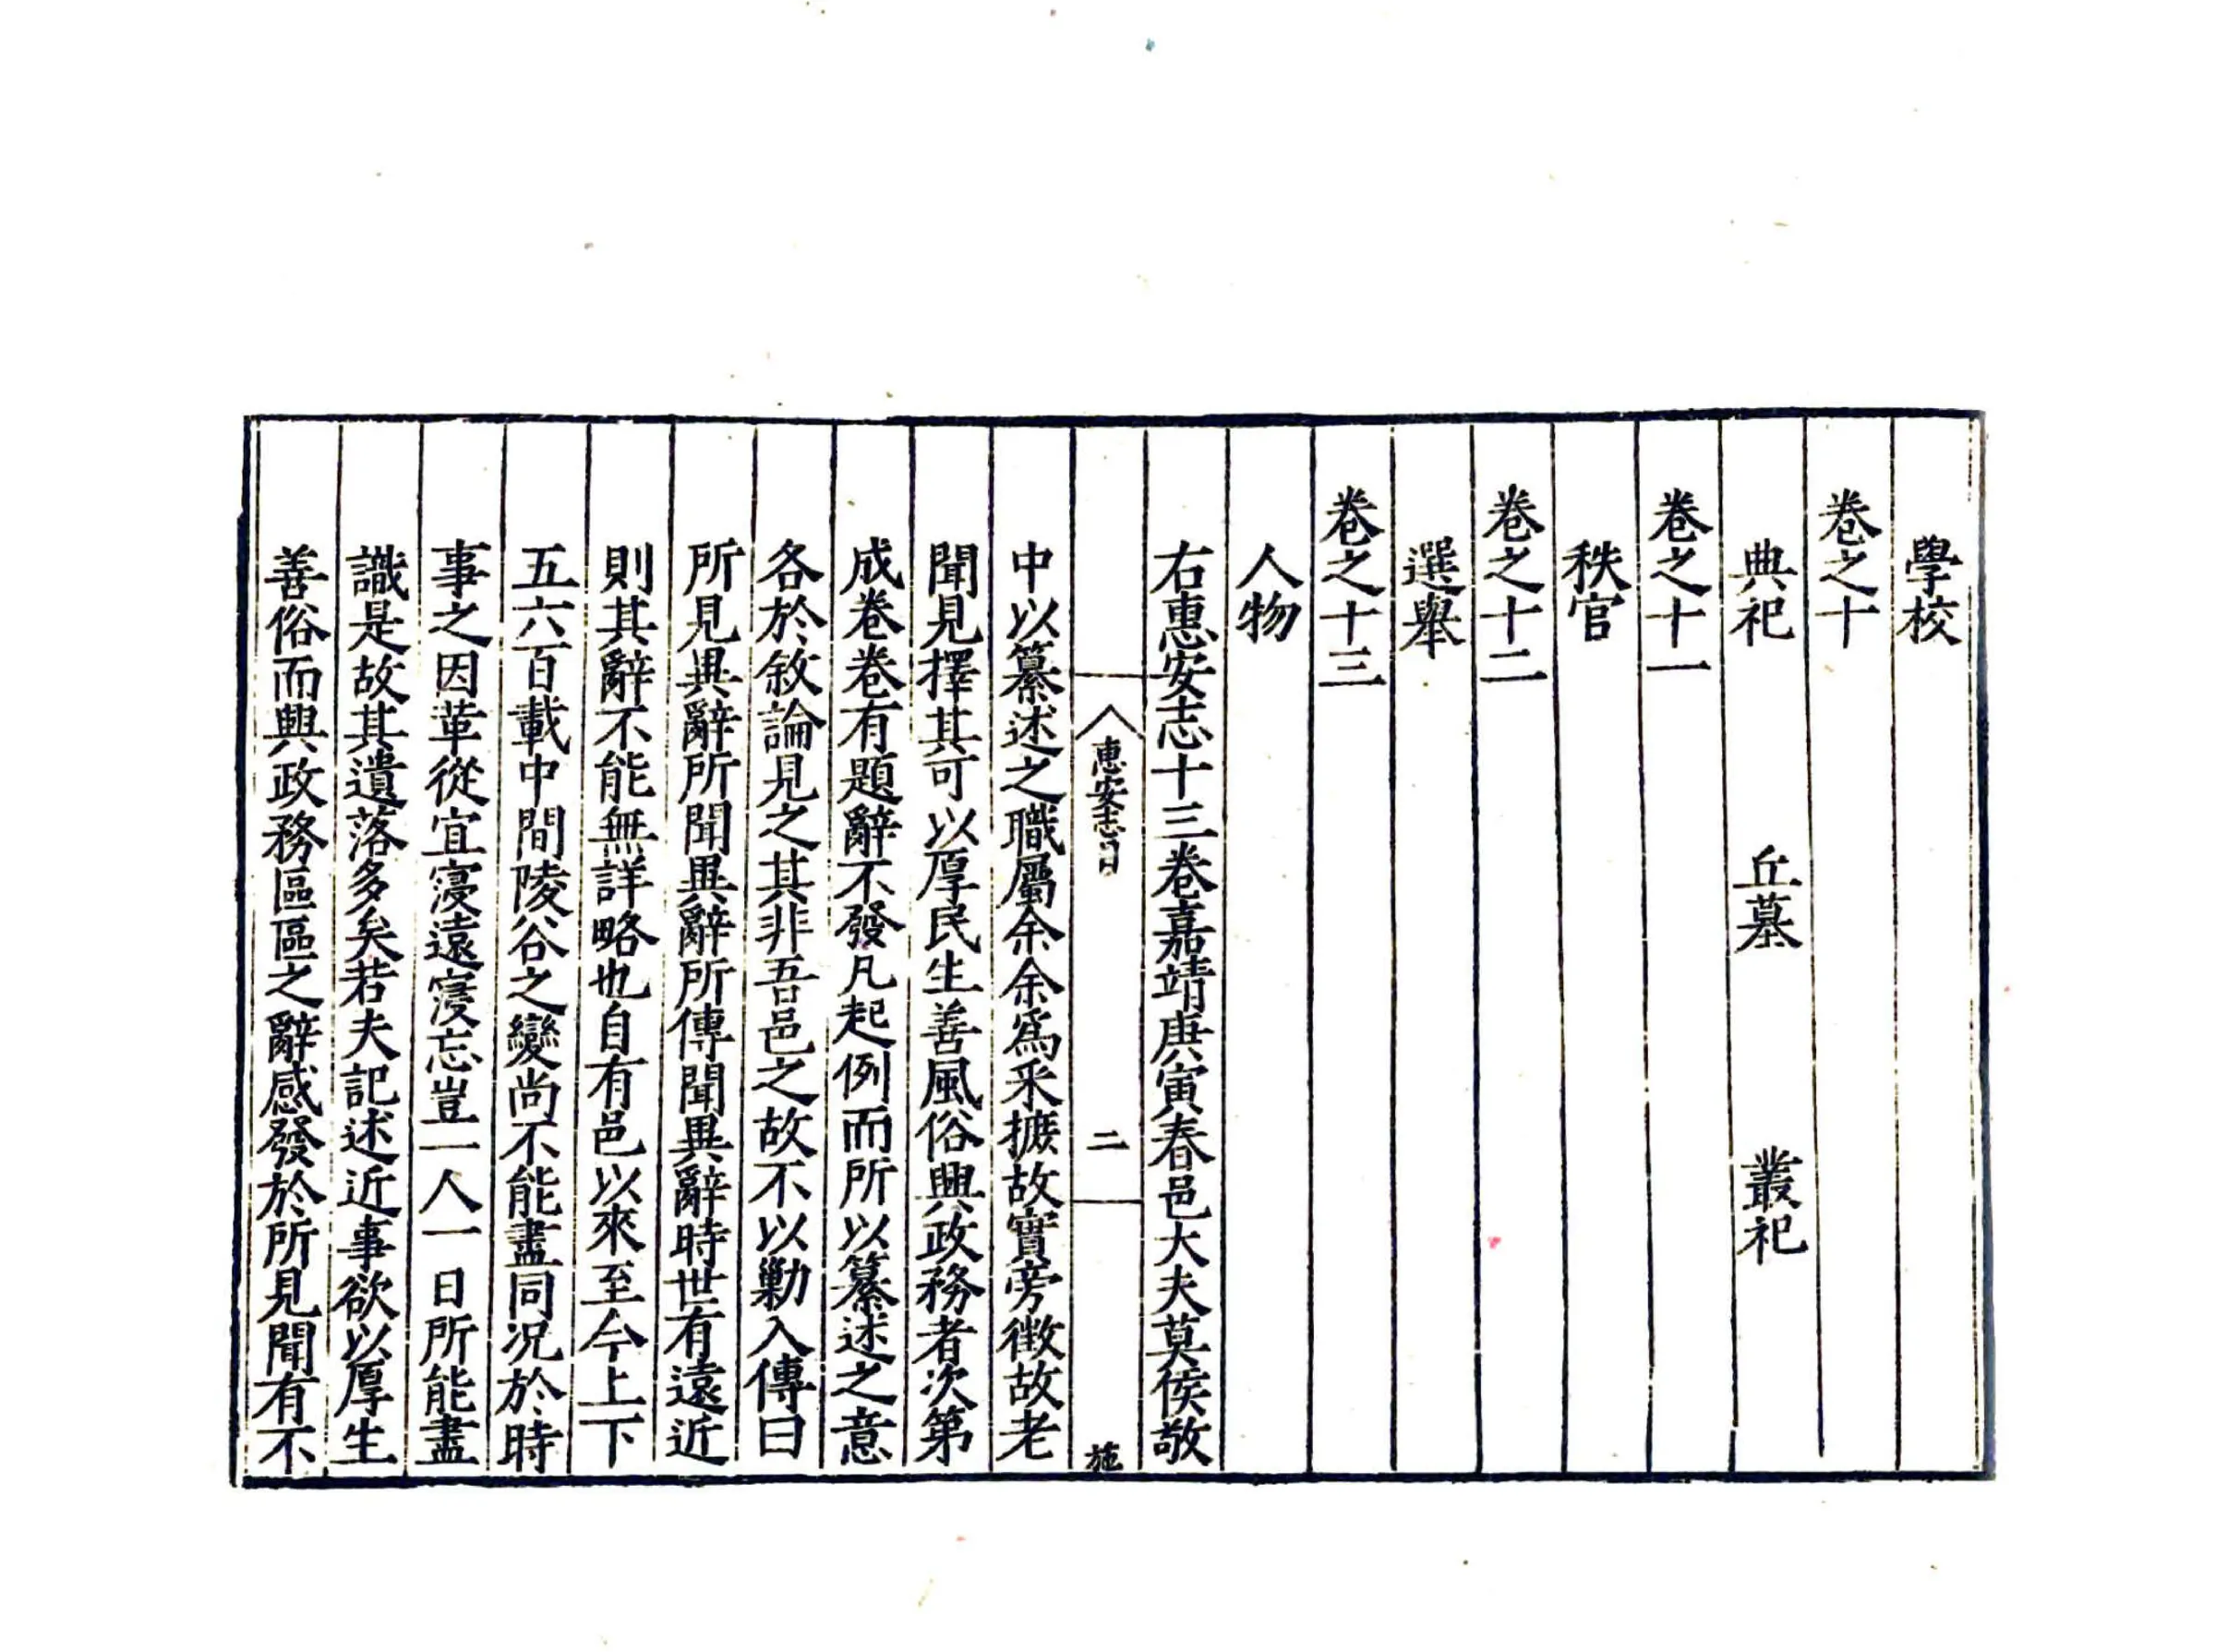 學校
卷之十
典祀 丘墓 叢祀
卷之十一
秩官
卷之十二
選舉
卷之十三
人物
右惠安志十三卷嘉靖庚寅春邑大夫莫侯敬
惠安志目 二 施
中以纂述之職屬余余爲采摭故實旁徴故老
聞見擇其可以厚民生善風俗興政務者次第
成卷卷有題辭不發凡起例而所以纂述之意
各於敘論見之其非吾邑之故不以勦入傳曰
所見異辭所聞異辭所傳聞異辭時世有遠近
則其辭不能無詳略也自有邑以來至今上下
五六百載中間陵谷之變尚不能盡同况於時
事之因革從宜寖遠寖忘豈一人一日所能盡
識是故其遺落多矣若夫記述近事欲以厚生
善俗而興政務區區之辭感發於所見聞有不